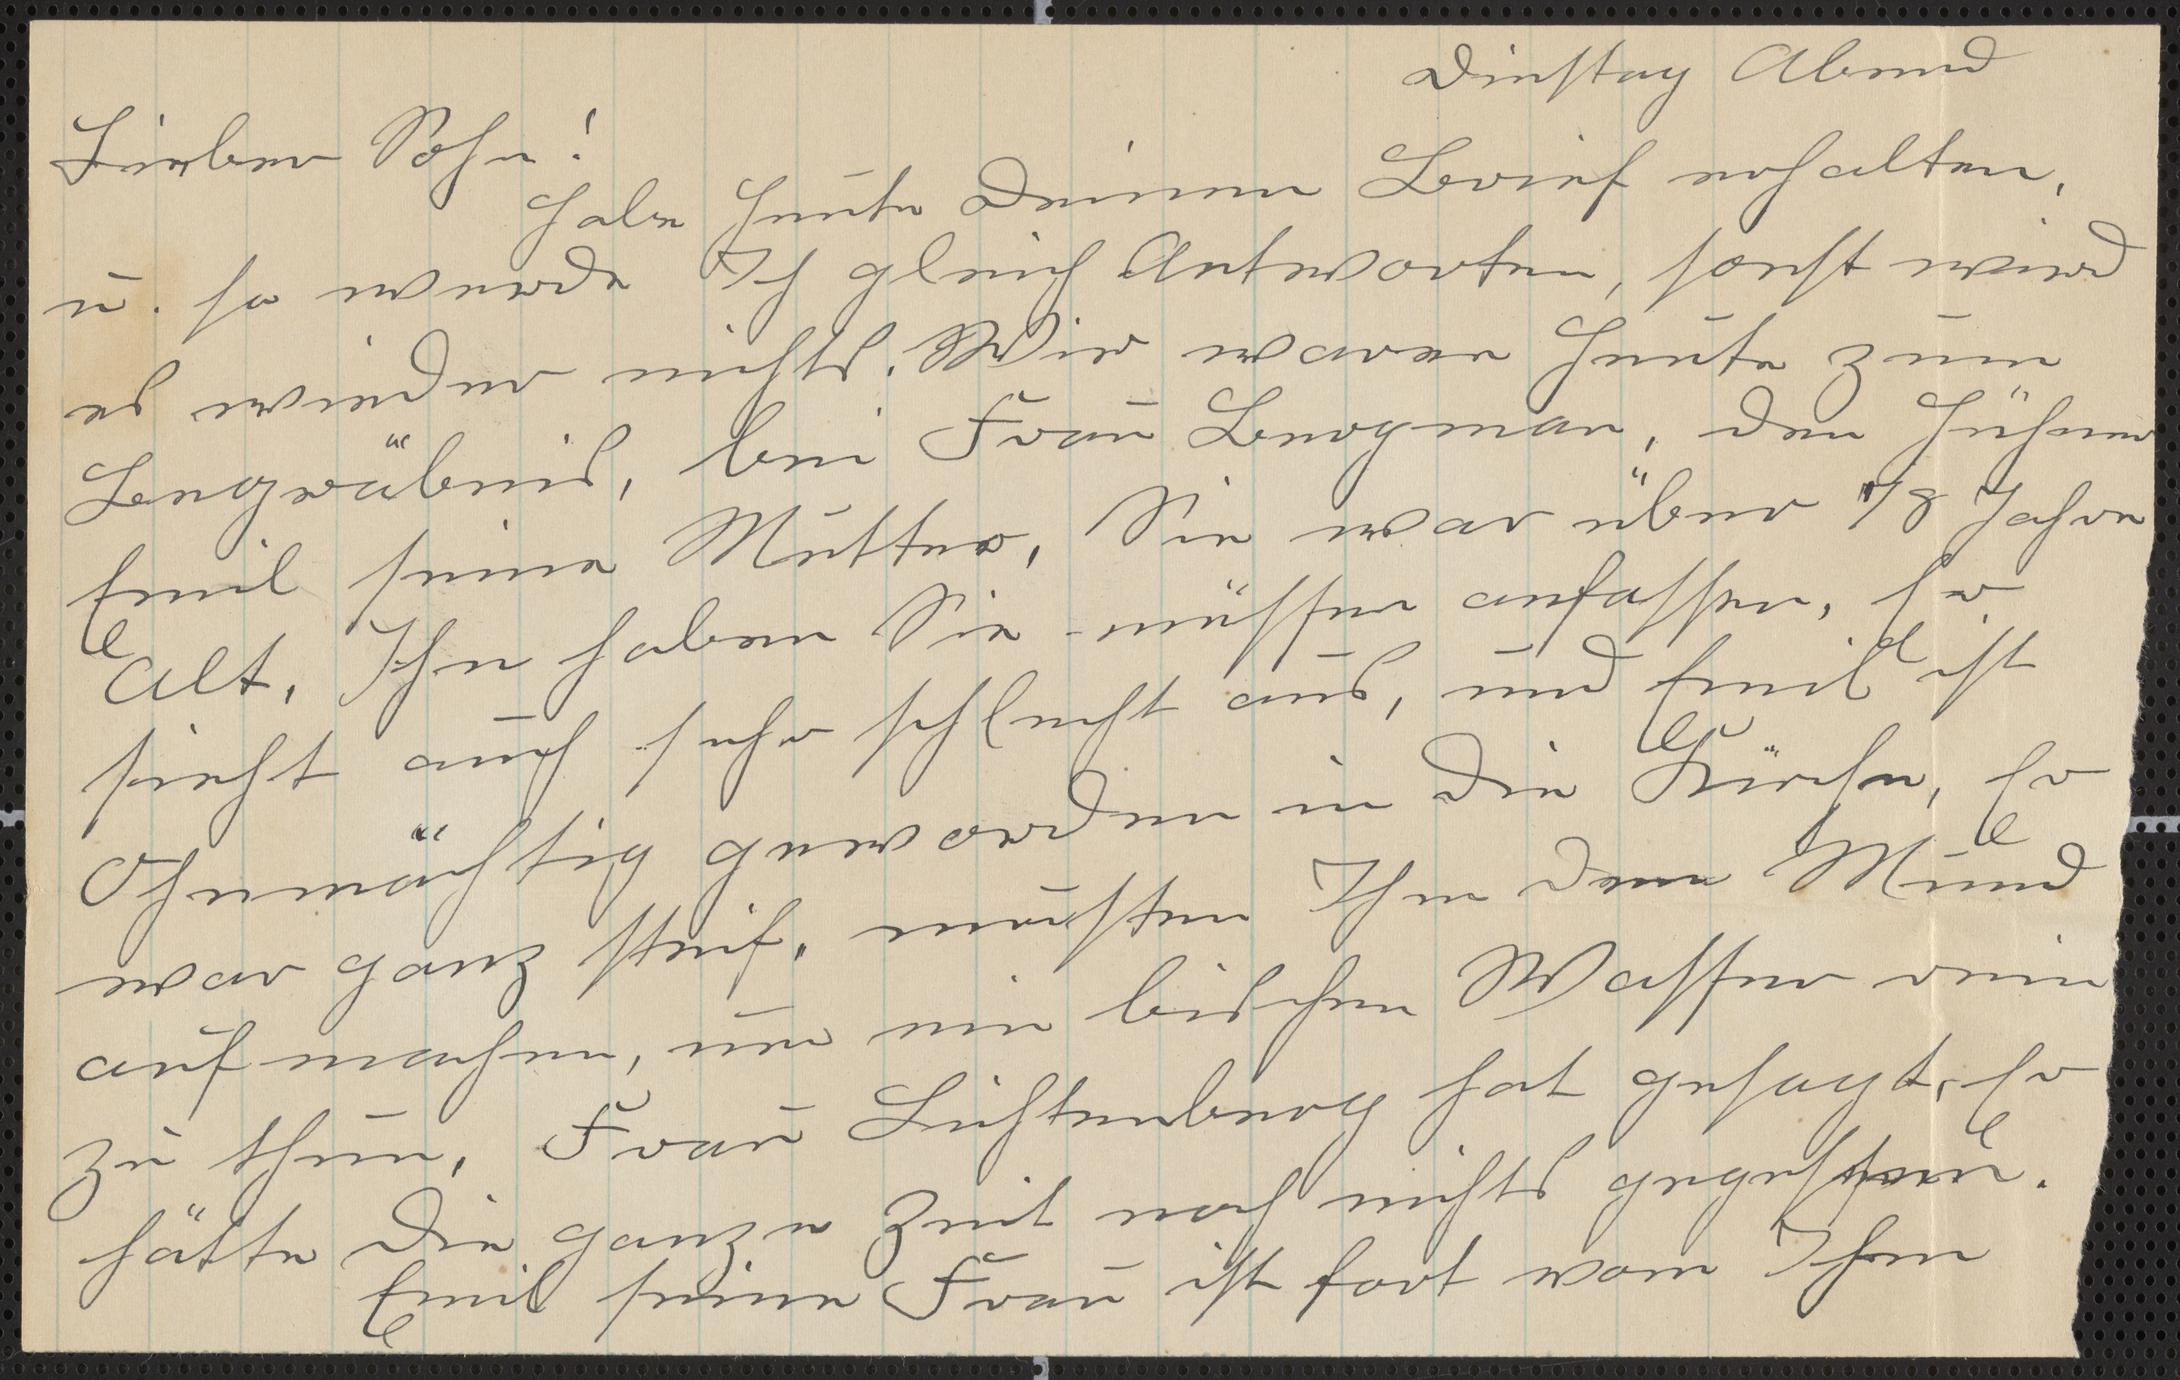 Dienstag Abend
Lieber Sohn!
Habe Heute Deinen Brief erhalten,
u. so werde Ich gleich Antworten, sonst wird
es wieder nichts. Wir waren Heute zum
Begräbnis, bei Frau Bergman, den Hühner
Emil seine Mutter, Sie war über 78 Jahre
Alt, Ihn haben Sie müssen anfassen, Er
sieht auch sehr schlecht aus, und Emil ist
Ohnmächtig geworden in die Kirche, Er
war ganz steif, mussten Ihn den Mund
auf machen, um ein bischen Wasser rein
zu thun, Frau Lichtenberg hat gesagt, Er
hätte die ganze Zeit noch nichts gegessen.
Emil seine Frau ist fort von Ihm